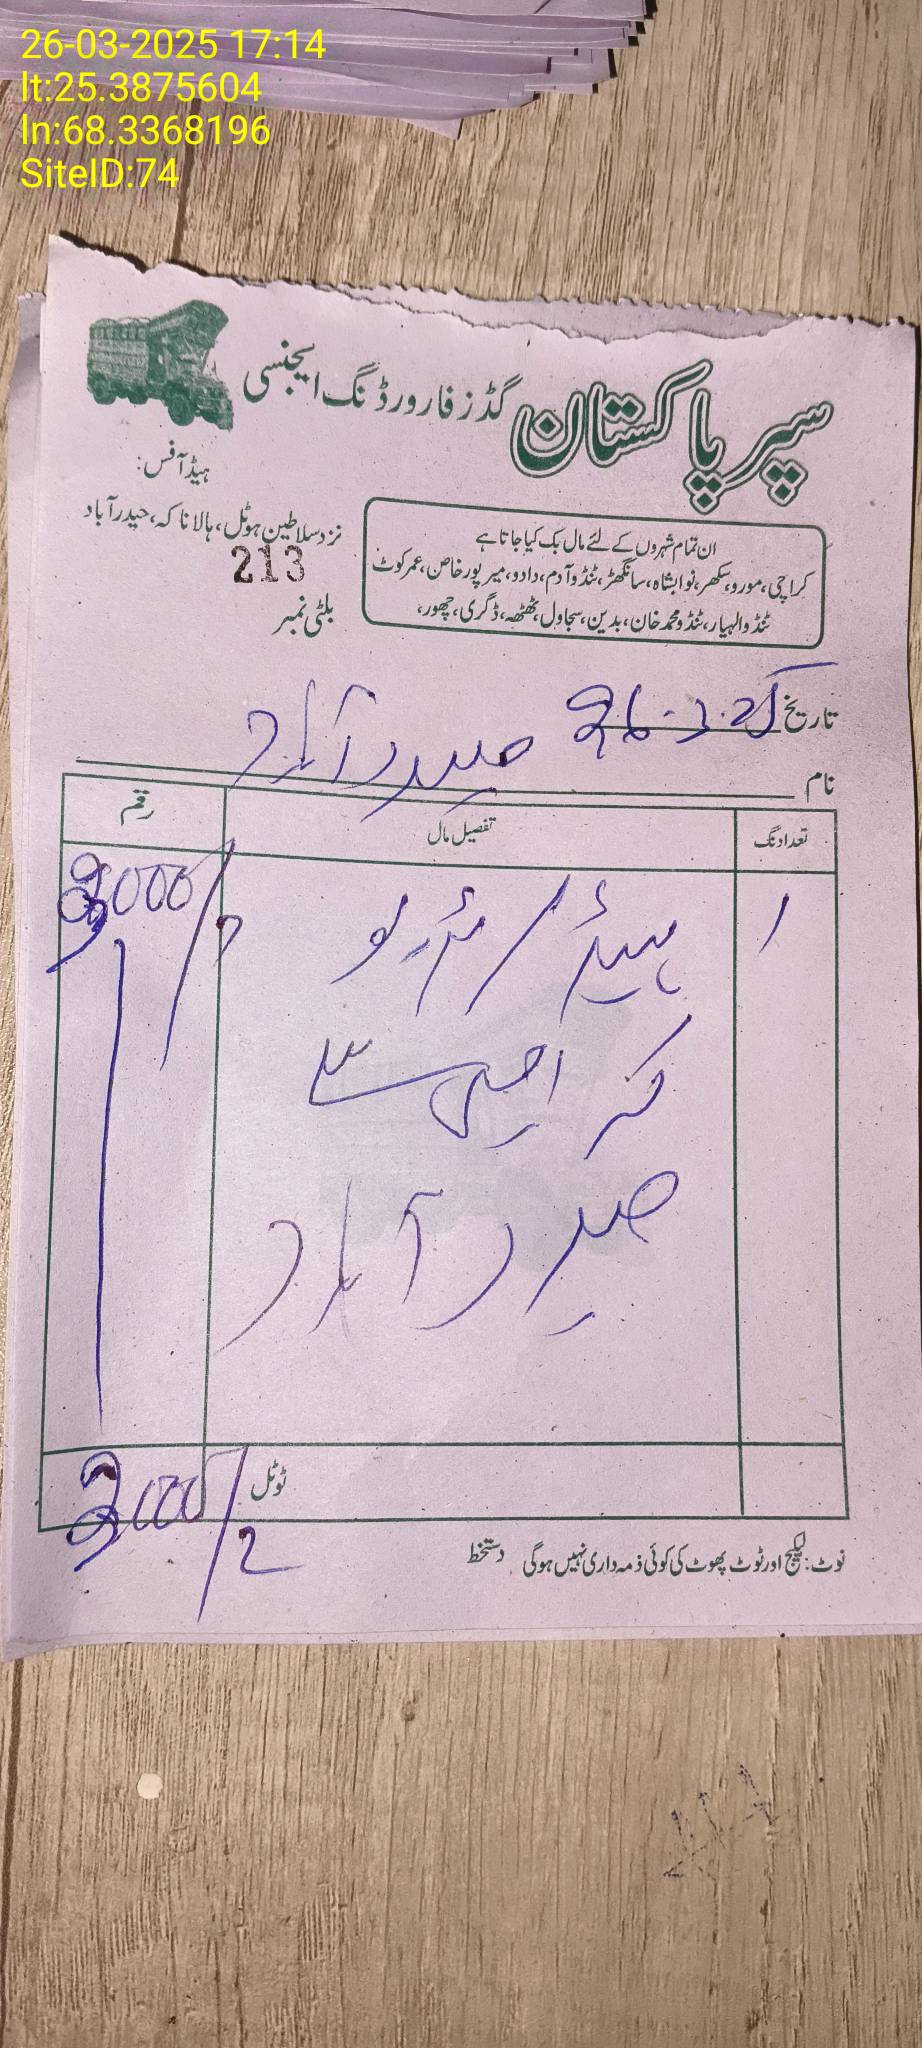 26-03-2025 17:14
lt:25.3875604
ln:68.3368196
SiteID:74
سپر پاکستان گڈز فارورڈنگ ایجنسی
ہیڈ آفس:
نزد سلاطین ہوٹل، ہالا ناکہ، حیدرآباد
ان تمام شہروں کے لئے مال بک کیا جاتا ہے
کراچی، مورو، سکھر، نوابشاہ، سانگھڑ، ٹنڈوآدم، دادو، میرپورخاص، عمرکوٹ
ٹنڈوالہیار، ٹنڈومحمدخان، بدین، سجاول، ٹھٹھہ، ڈگری، چھور،
213
بلٹی نمبر
تاریخ 26.3.25
نام حیدرآباد
تعدادنگ تفصیل مال رقم
1 ہیڈ
کراچی سے
حیدرآباد
ٹوٹل
نوٹ: لیکیج اور ٹوٹ پھوٹ کی کوئی ذمہ داری نہیں ہوگی دستخط